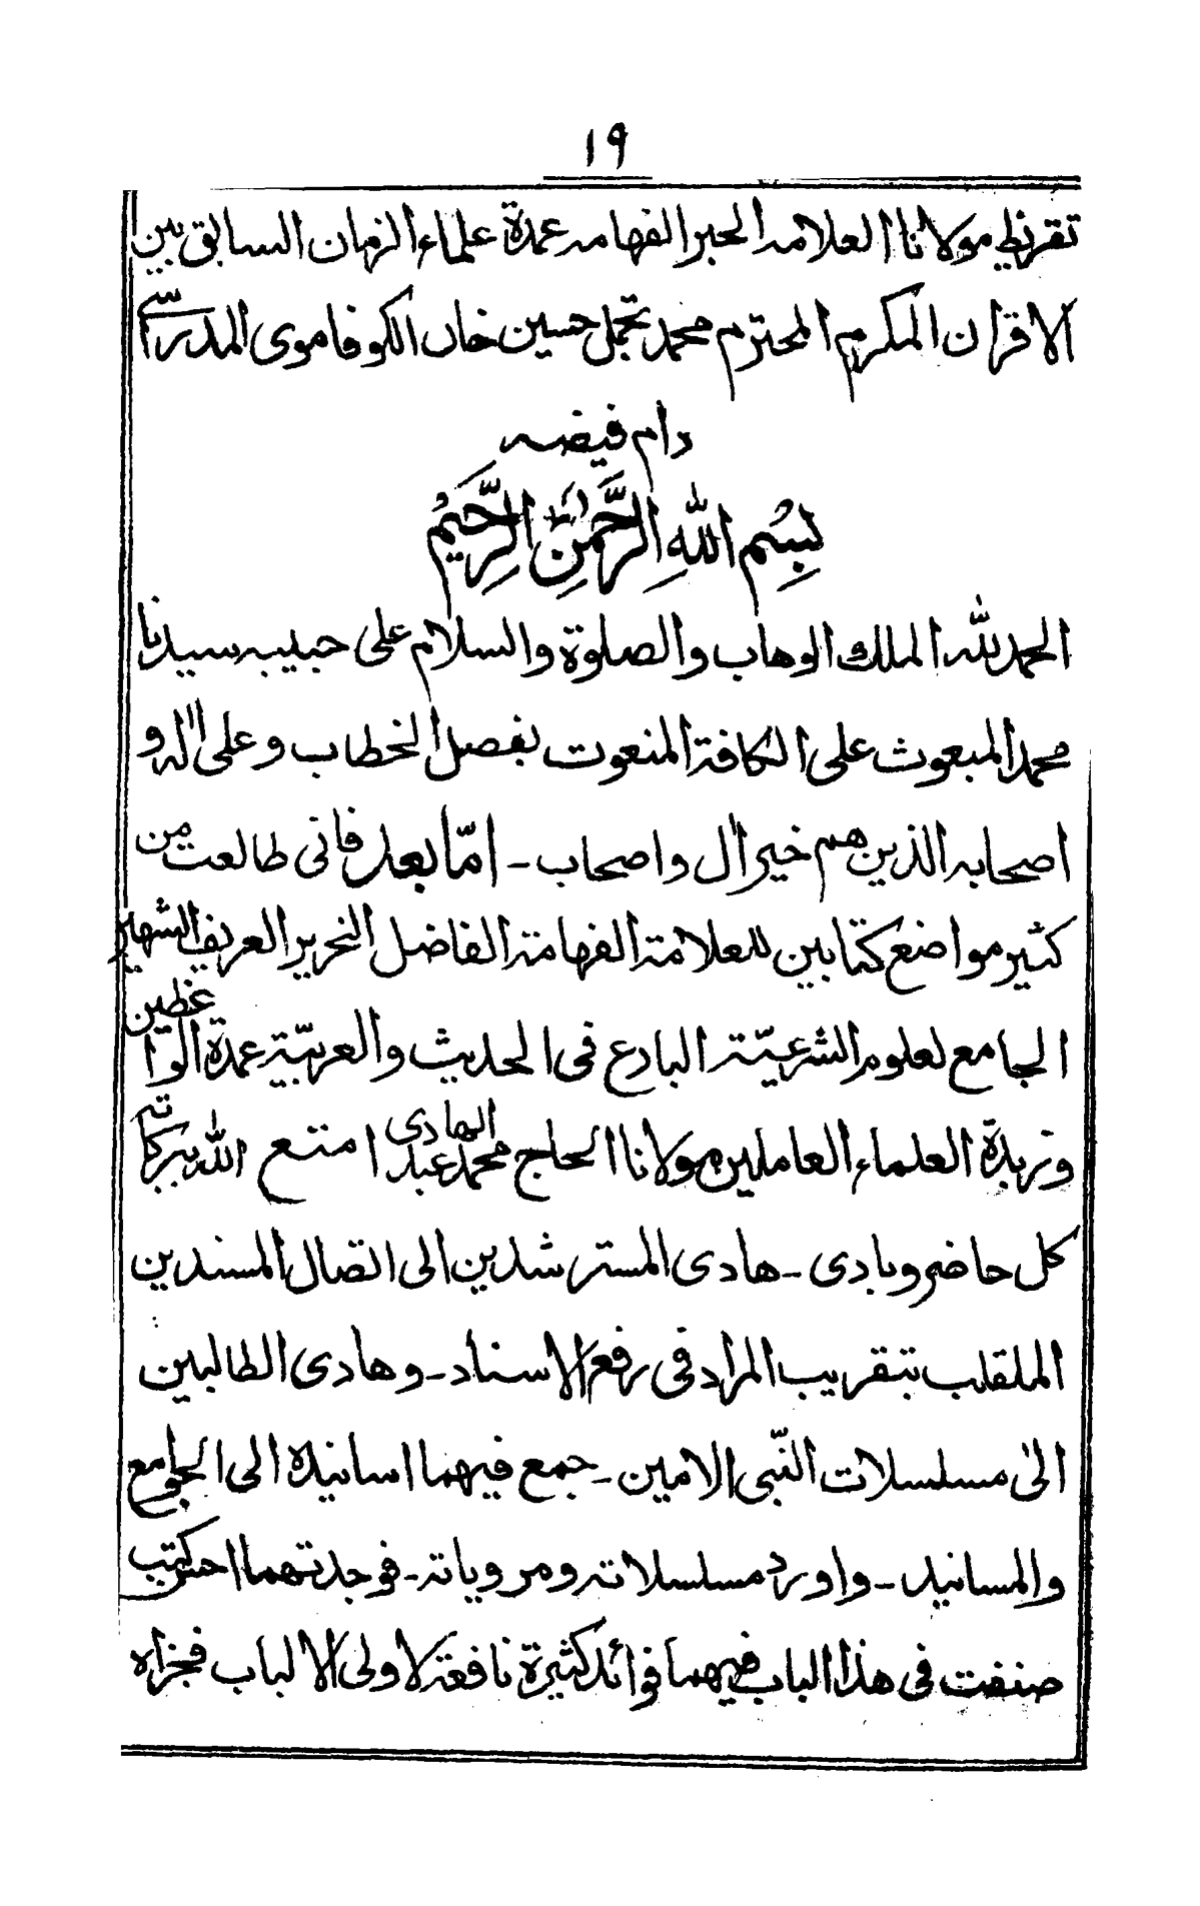 ١٩
تقريظ مولانا العلامه الحبر الفهامه عمدة علماء الزمان السابق بين
الاقران المكرم المحترم محمد تجمل حسين خاں الكوفاموى المدراسى
دام فيضه
بِسْمِ اللهِ الرَّحْمٰنِ الرَّحِيْمِ
الحمد لله الملك الوهاب والصلوة والسلام على حبيبه سيدنا
محمد المبعوث على الكافة المنعوت بفصل الخطاب وعلى اٰله و
اصحابه الذين هم خير اٰل واصحاب - امّا بعد فانى طالعت من
كثير مواضع كتابين للعلامة الفهامة الفاضل النحرير العريف الشهير
الجامع لعلوم الشرعيّة البارع فى الحديث والعربيّة عمدة الواعظين
وزبدة العلماء العاملين مولانا الحاج محمد عبد الهادى امتع الله ببركاته
كل حاضر وبادى - هادى المسترشدين الى اتصال المسندين
الملقلب بتقريب المراد فى رفع الاسناد - وهادى الطالبين
الىٰ مسلسلات النّبى الامين - جمع فيهما اسانيده الى الجوامع
والمسانيد - واورد مسلسلاته ومروياته - فوجدتهما احسن كتب
صنفت فى هذا الباب فيهما فوائد كثيرة نافعة لاولى الالباب فجزاه